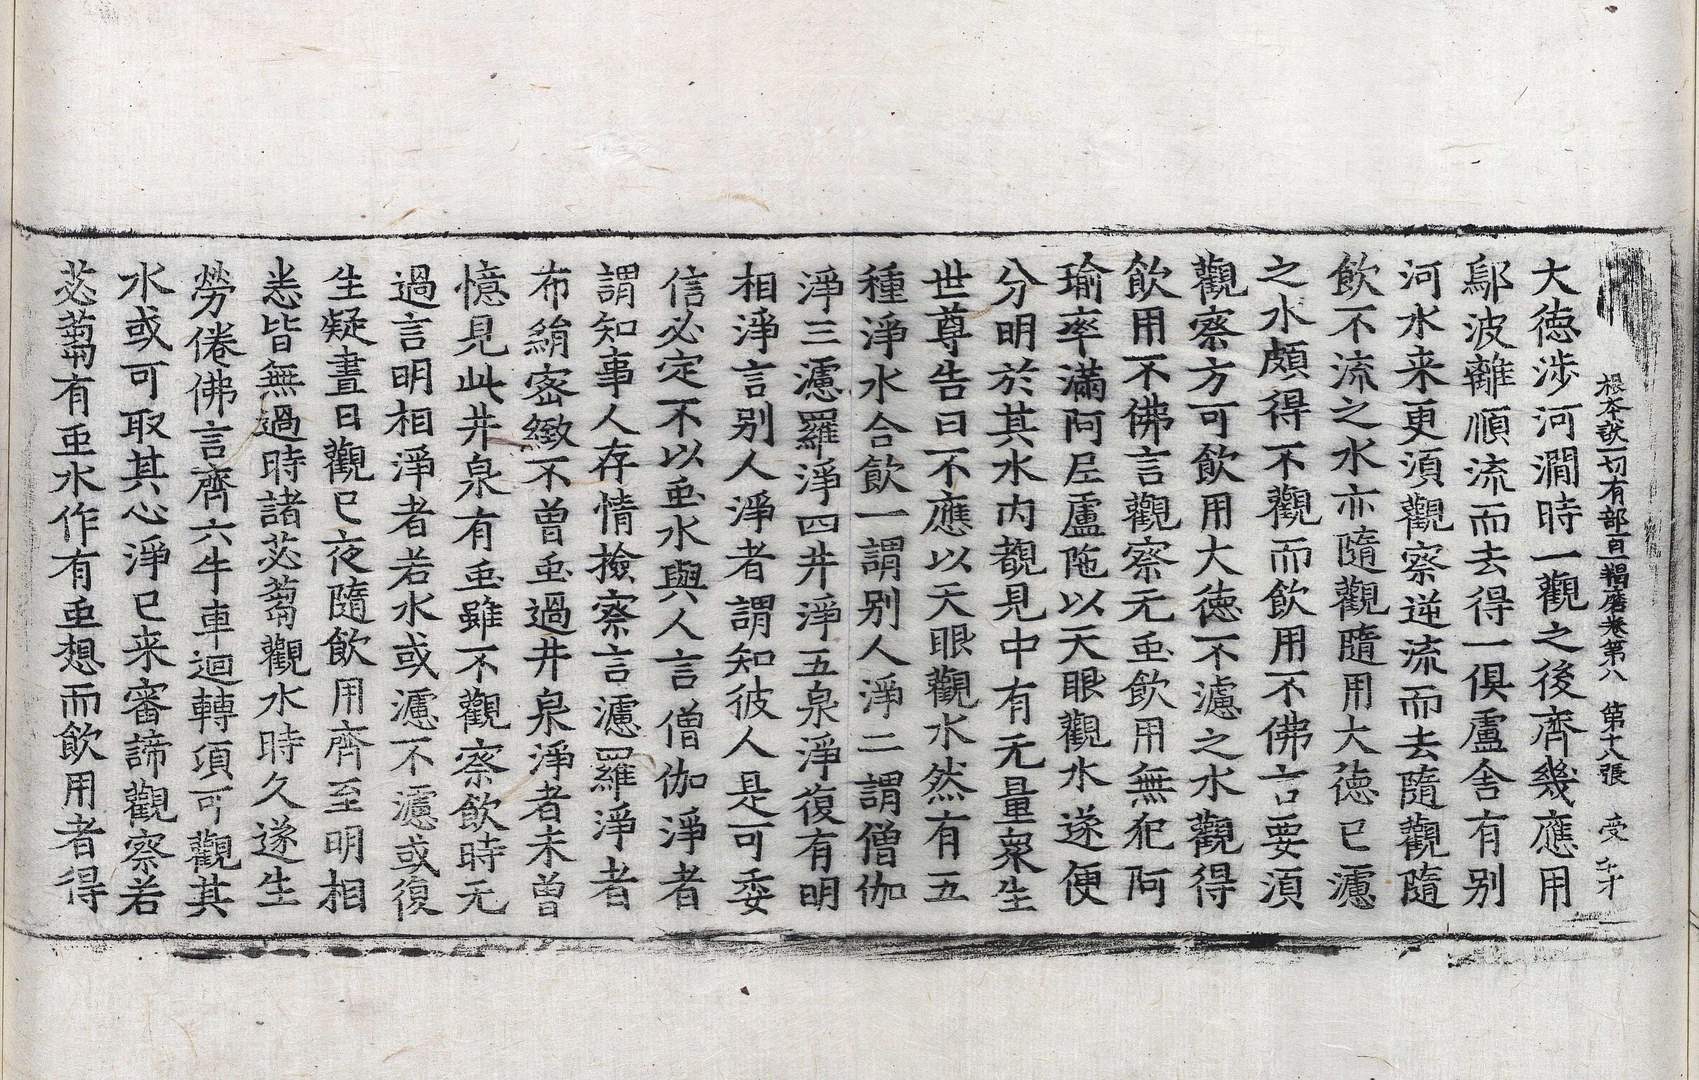 根本說一切有部百一羯磨卷第八　第十八張　受
大德涉河澗時一觀之後齊幾應用
鄔波離順流而去得一俱盧舍有別
河水来更湏觀察逆流而去隨觀隨
飲不流之水亦隨觀隨用大德已濾
之水頗得不觀而飲用不佛言要湏
觀察方可飲用大德不濾之水觀得
飲用不佛言觀察无䖝飲用無犯阿
瑜率滿阿𡰱盧陁以天眼觀水遂便
分明於其水內覩見中有无量衆生
世尊告曰不應以天眼觀水然有五
種淨水合飲一謂別人淨二謂僧伽
淨三濾羅淨四井淨五泉淨復有明
相淨言別人淨者謂知彼人是可委
信必定不以䖝水與人言僧伽淨者
謂知事人存情撿察言濾羅淨者
布絹密緻不曾䖝過井泉淨者未曾
憶見此井泉有䖝雖不觀察飲時无
過言明相淨者若水或濾不濾或復
生疑晝日觀已夜隨飲用齊至明相
恙皆無過時諸苾蒭觀水時久遂生
勞倦佛言齊六牛車迴轉湏可觀其
水或可取其心淨已来審諦觀察若
苾蒭有䖝水作有䖝想而飲用者得